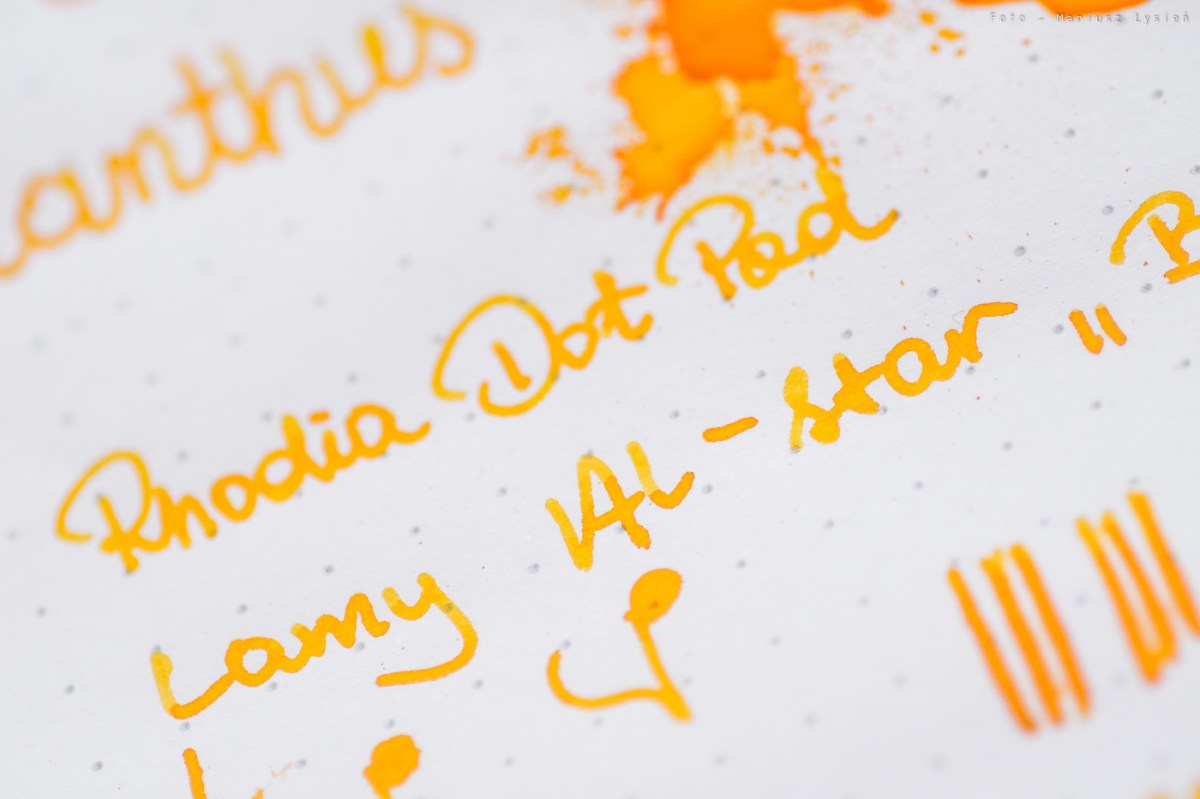 Foto - Mariusz Łysień
anthus
Rhodia Dot Pad
Lamy AL-star "B